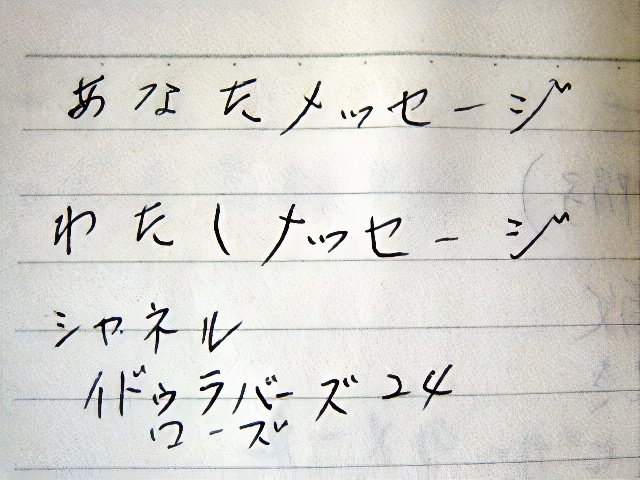 あなたメッセージ
わたしメッセージ
シャネル
イドゥラバーズ24
ローズ